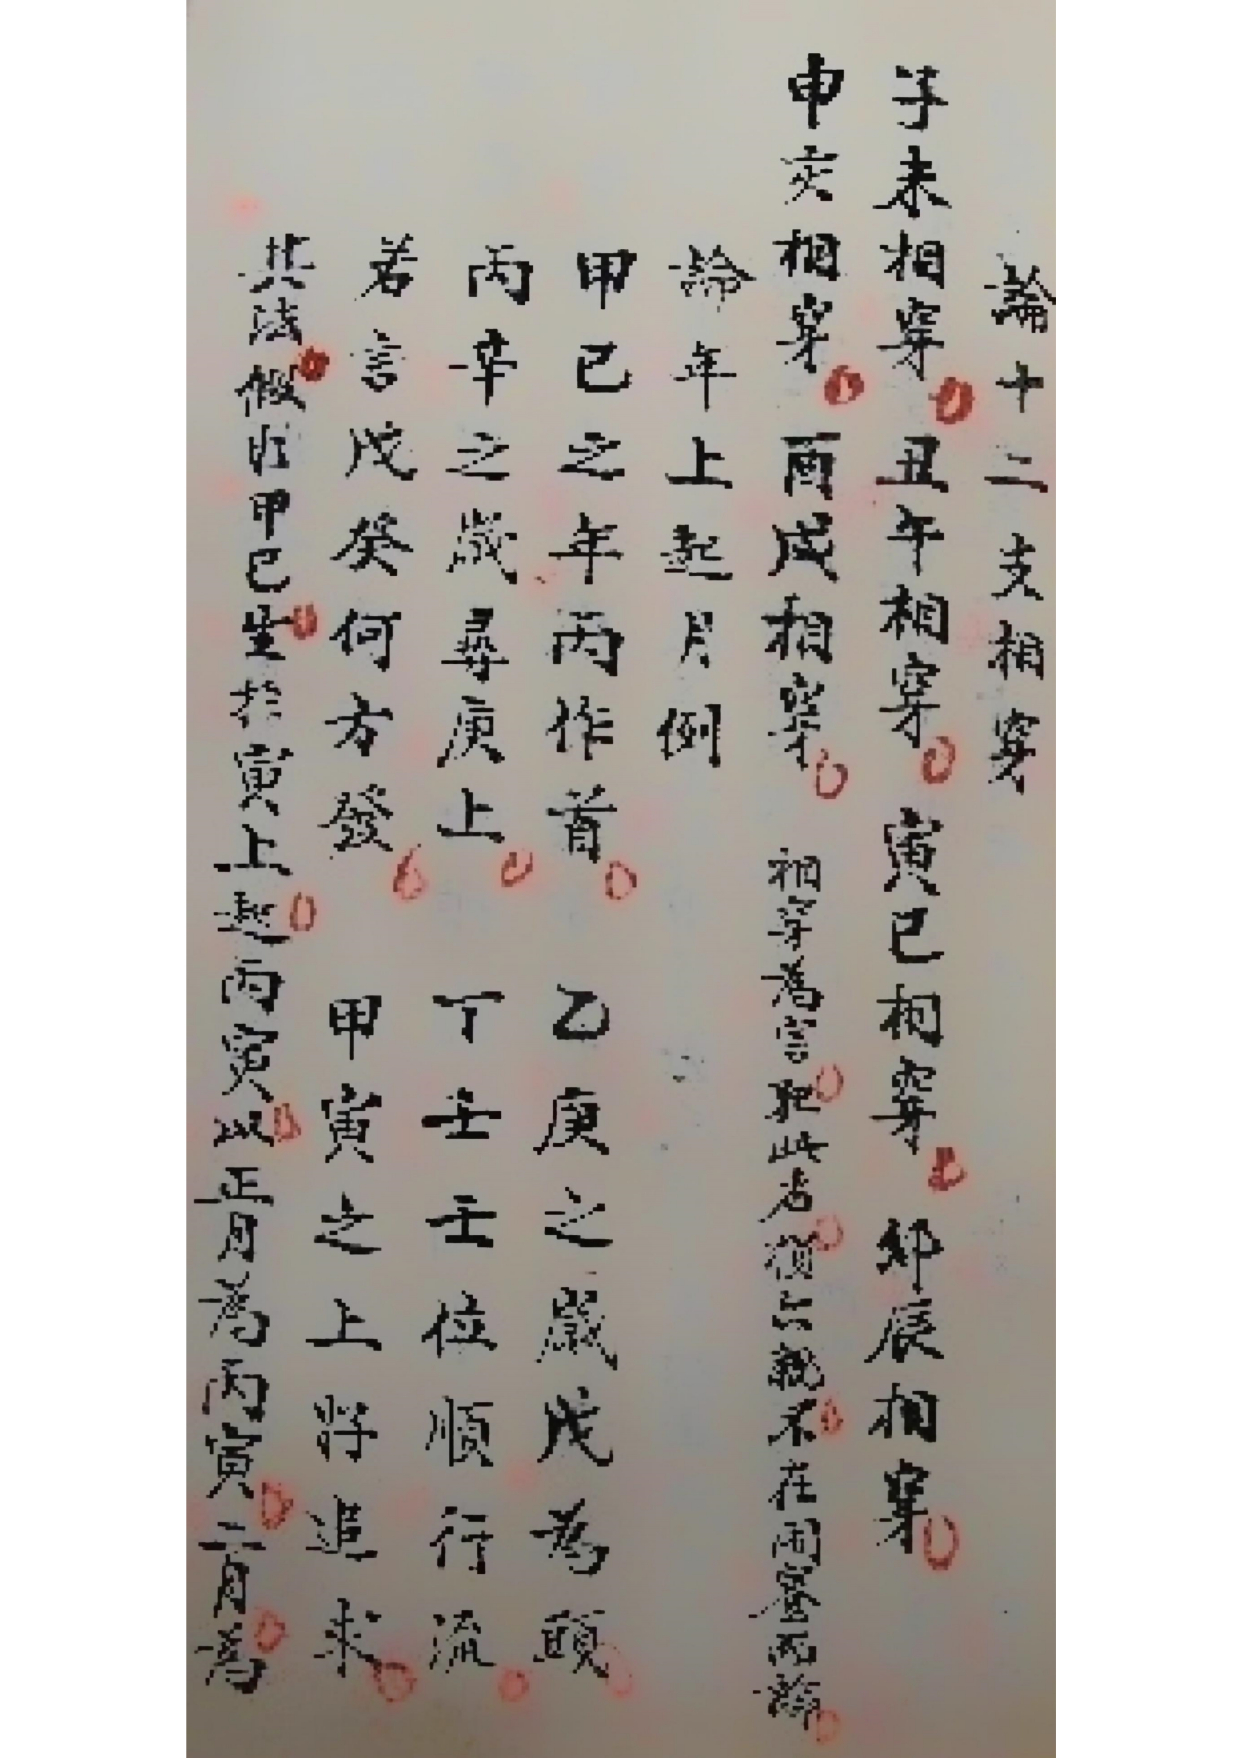 論十二支相穿
子未相穿 丑午相穿 寅巳相穿 卯辰相穿
申亥相穿 酉戌相穿 相穿為害犯此者 不在 而論
論年上起月例
甲己之年丙作首 乙庚之歲戊為頭
丙辛之歲尋庚上 丁壬壬位順行流
若言戊癸何方發 甲寅之上將追求
其法假如甲己生於寅上起丙寅以正月為丙寅二月為